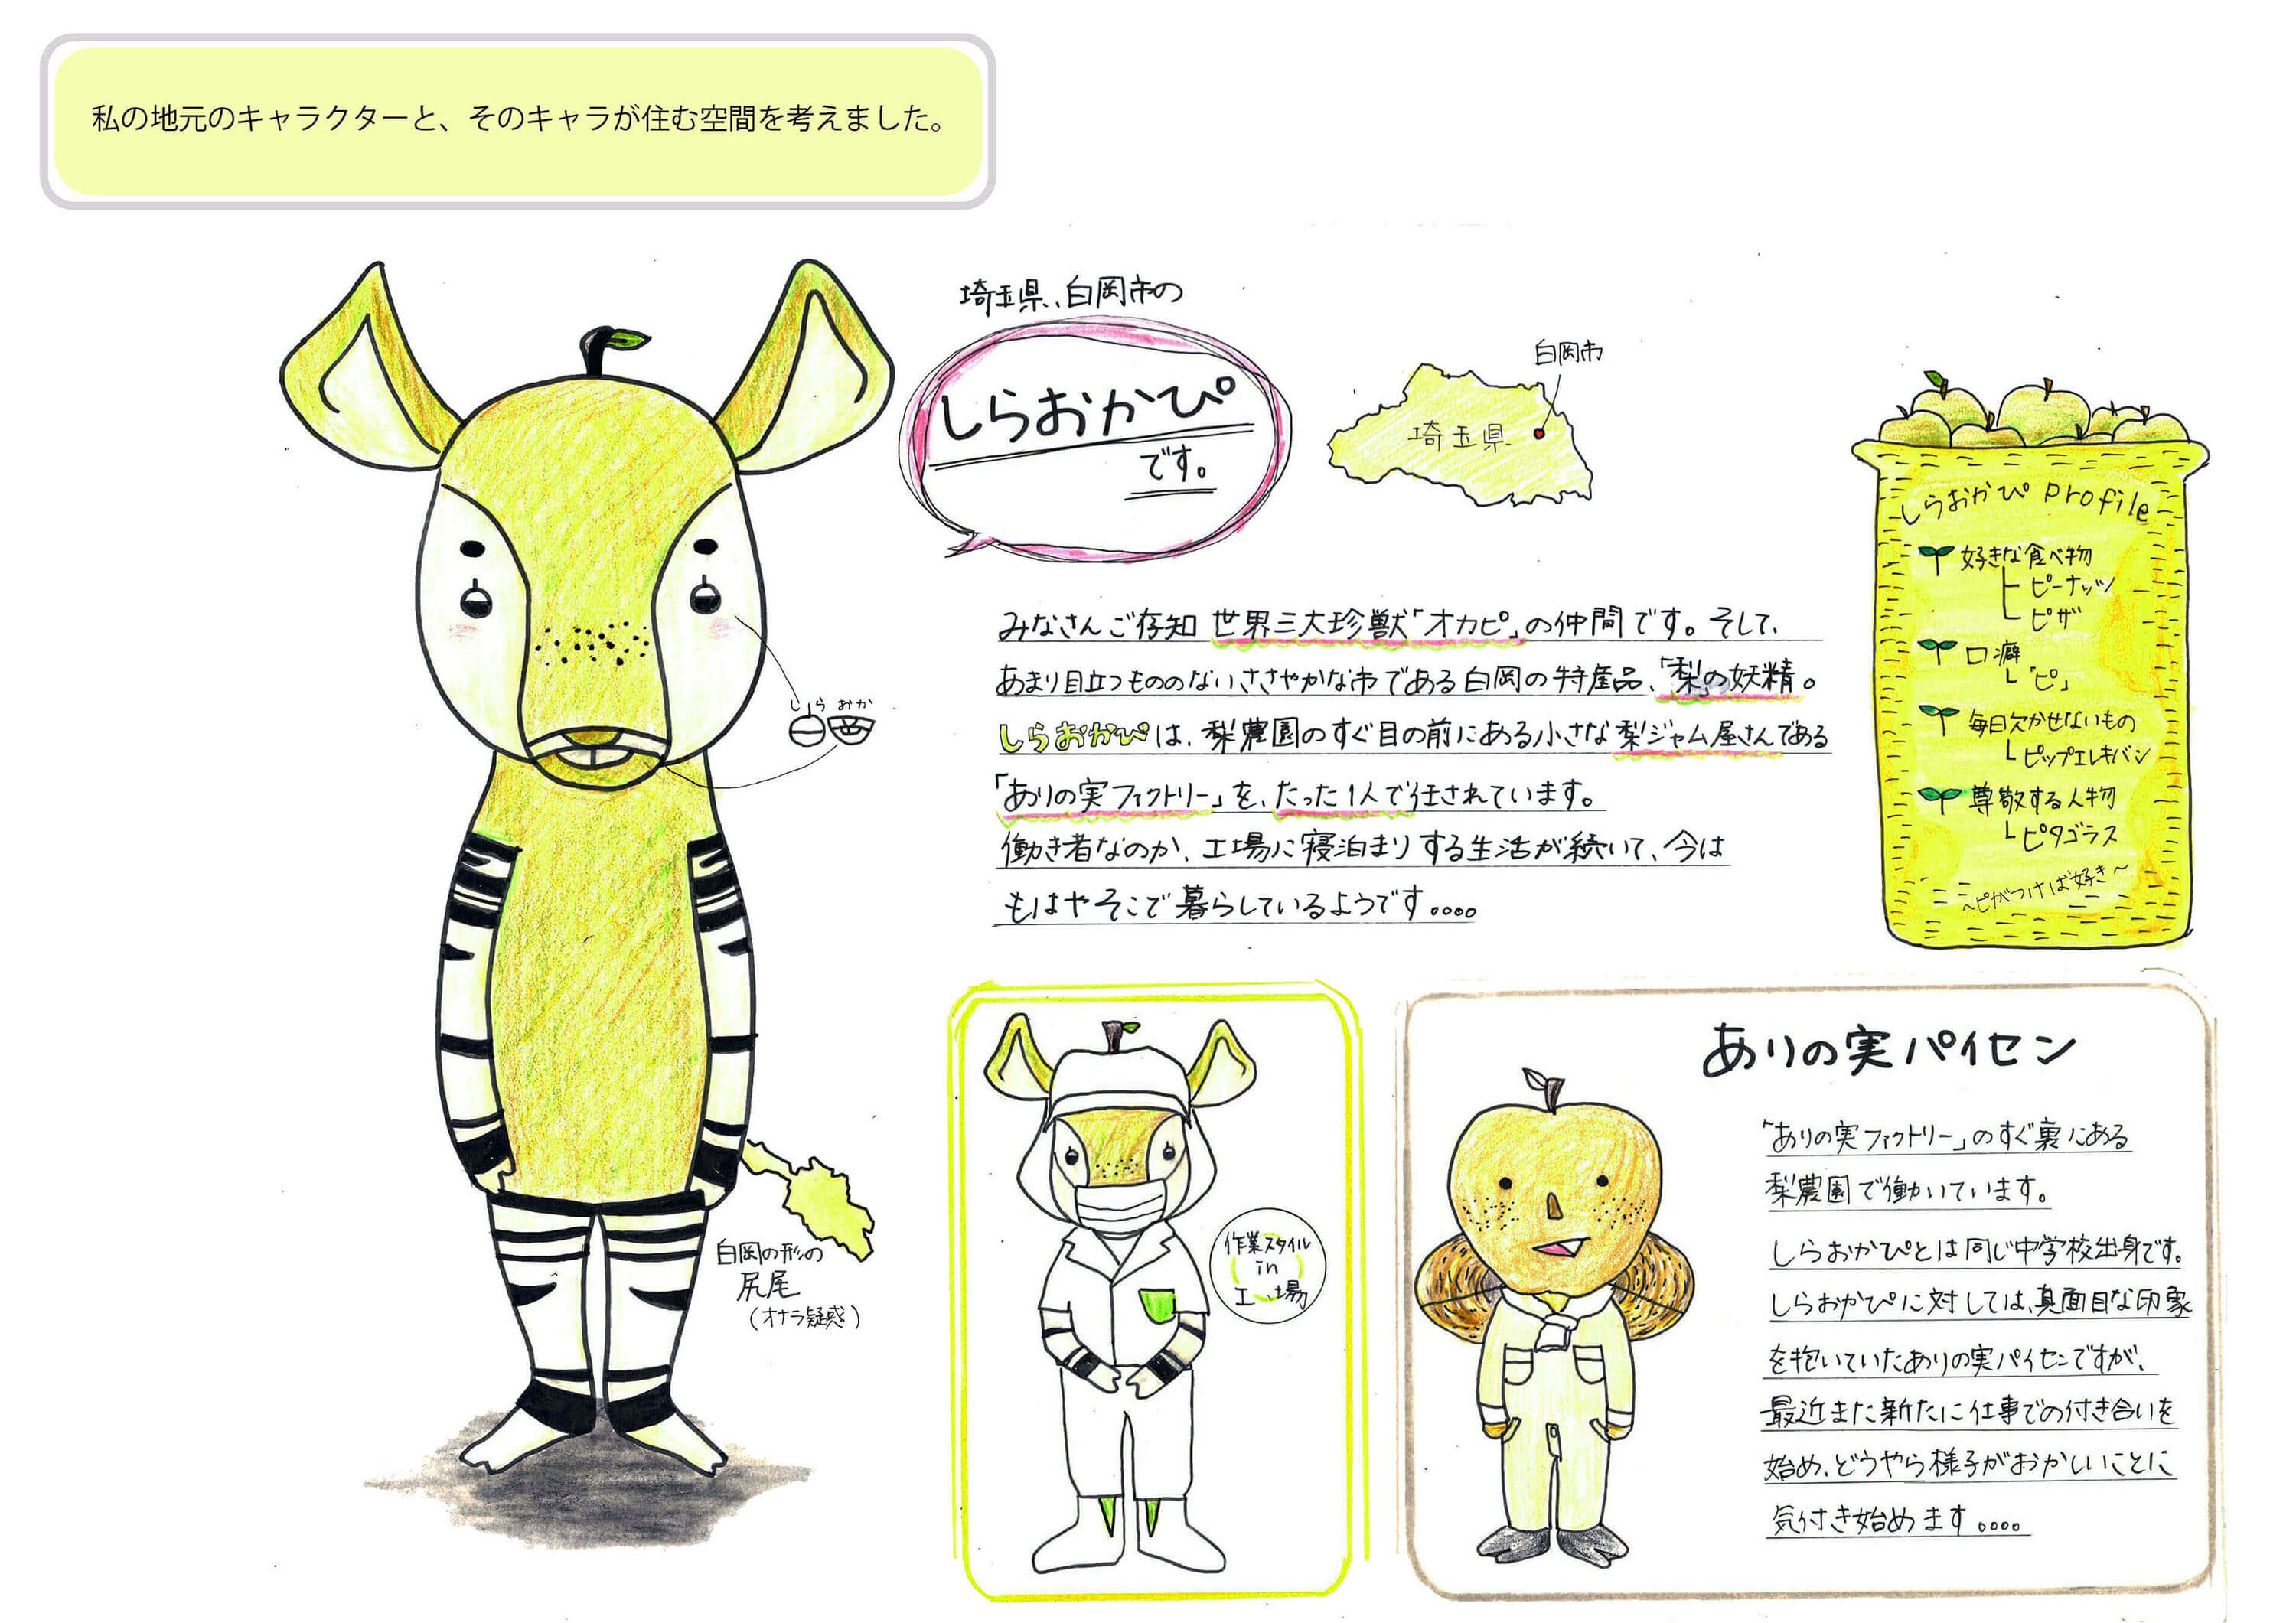 私の地元のキャラクターと、そのキャラが住む空間を考えました。
埼玉県、白岡市の
しらおかぴ
です。
白岡市
埼玉県
みなさんご存知 世界三大珍獣「オカピ」の仲間です。そして、
あまり目立つもののないささやかな市である白岡の特産品、「梨の妖精。
しらおかぴは、梨農園のすぐ目の前にある小さな梨ジャム屋さんである
「ありの実ファクトリー」を、たった1人で任されています。
働き者なのか、工場に寝泊まりする生活が続いて、今は
もはやそこで暮らしているようです。。。。
しらおかぴ profile
好きな食べ物
ピーナッツ
ピザ
口癖
「ピ」
毎日欠かせないもの
ピップエレキバン
尊敬する人物
ピタゴラス
〜ピがつけば好き〜
しらおか
白岡の形の
尻尾
(オナラ疑惑)
作業スタイル
in
工場
ありの実パイセン
「ありの実ファクトリー」のすぐ裏にある
梨農園で働いています。
しらおかぴとは同じ中学校出身です。
しらおかぴに対しては、真面目な印象
を抱いていたありの実パイセンですが、
最近また新たに仕事での付き合いを
始め、どうやら様子がおかしいことに
気付き始めます。。。。